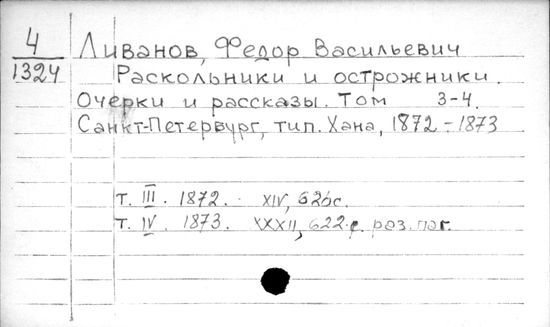 4
1324
Ливанов, Федор Васильевич
Раскольники и острожники.
Очерки и рассказы. Том 3-4.
Санкт-Петербург, тип. Хана, 1872-1873
т. III. 1872. XIV, 626с.
т. IV. 1873. XXXII, 622 с. роз. паг.